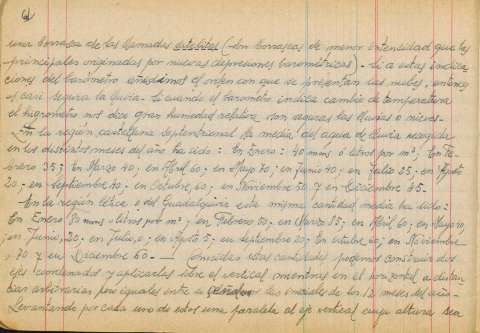 una borrasca de las llamadas orbital (son borrascas de menor intensidad que las
principales originadas por nuevas depresiones barométricas). Si a estas indica
ciones del barómetro añadimos el orden con que se presentan las nubes, entonces
es casi segura la lluvia. Si cuando el barómetro indica cambio de temperatura
el higrómetro nos dice gran humedad relativa son seguras las lluvias o nieves.
En la región castellana septentrional la media del agua de lluvia recogida
en los distintos meses del año ha sido: En Enero: 40 mms ó litros por m²; En Fe
brero 35; en Marzo 40; en Abril 60; en Mayo 70; en Junio 40; en Julio 25; en Agosto
20; en septiembre 40; en Octubre, 60; en Noviembre 50 y en Diciembre 45.
En la región Bética o del Guadalquivir esta misma cantidad media ha sido:
En Enero 80 mms o litros por m²; en Febrero 80; en Marzo 85; en Abril, 60; en Mayo 40,
; en Junio, 20; en Julio, 0; en Agosto 5; en septiembre 20; en octubre 60; en Noviembre
70 y en Diciembre 60. — estas cantidades podemos construir dos
ejes coordenados y aplicarlas sobre el vertical mientras en el horizontal a distan
cias arbitrarias pero iguales entre si las iniciales de los 12 meses del año.
Levantando por cada uno de estos una paralela al eje vertical cuya altura sea